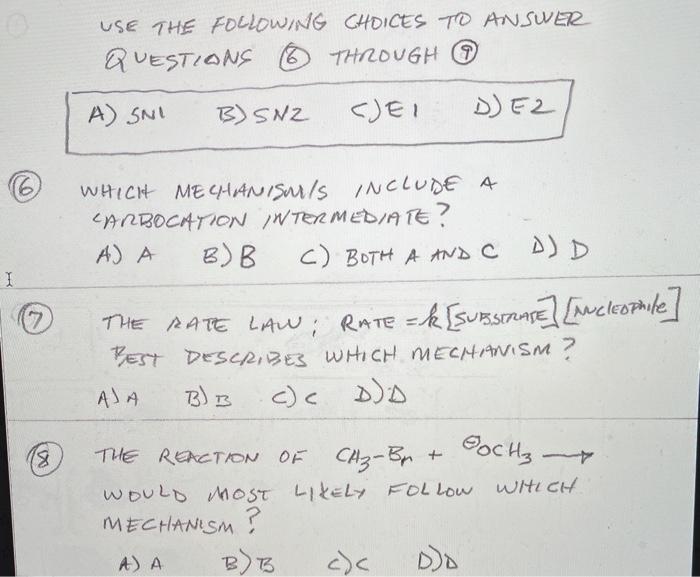 USE THE FOLLOWING CHOICES TO ANSWER
QUESTIONS ⑥ THROUGH ⑨
A) SN1 B) SN2 C) E1 D) E2
⑥ WHICH MECHANISM/S INCLUDE A
CARBOCATION INTERMEDIATE?
A) A B) B C) BOTH A AND C D) D
⑦ THE RATE LAW; RATE = k [SUBSTRATE] [NUCLEOPHILE]
BEST DESCRIBES WHICH MECHANISM?
A) A B) B C) C D) D
⑧ THE REACTION OF CH3-Br + ⊖OCH3 →
WOULD MOST LIKELY FOLLOW WHICH
MECHANISM?
A) A B) B C) C D) D